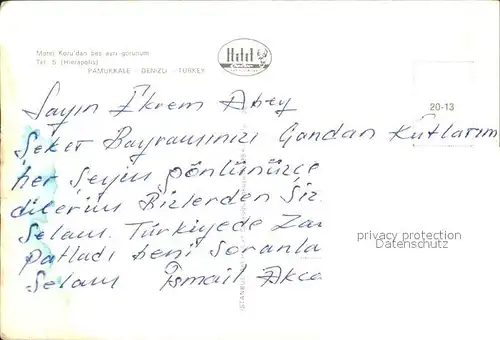 Motel Koru'dan beş ayrı görünüm
Tel: 5 (Hierapolis)
PAMUKKALE - DENİZLİ - TÜRKEY
Hitit
20-13
Sayın Ekrem Abey
Şeker Bayramınızı Candan Kutlarım
her şeyin gönlünüzce
dilerim Bizlerden Siz
Selam. Türkiyede Zam
Patladı beni Soranla
Selam İsmail Akca
İSTANBUL
privacy protection
Datenschutz